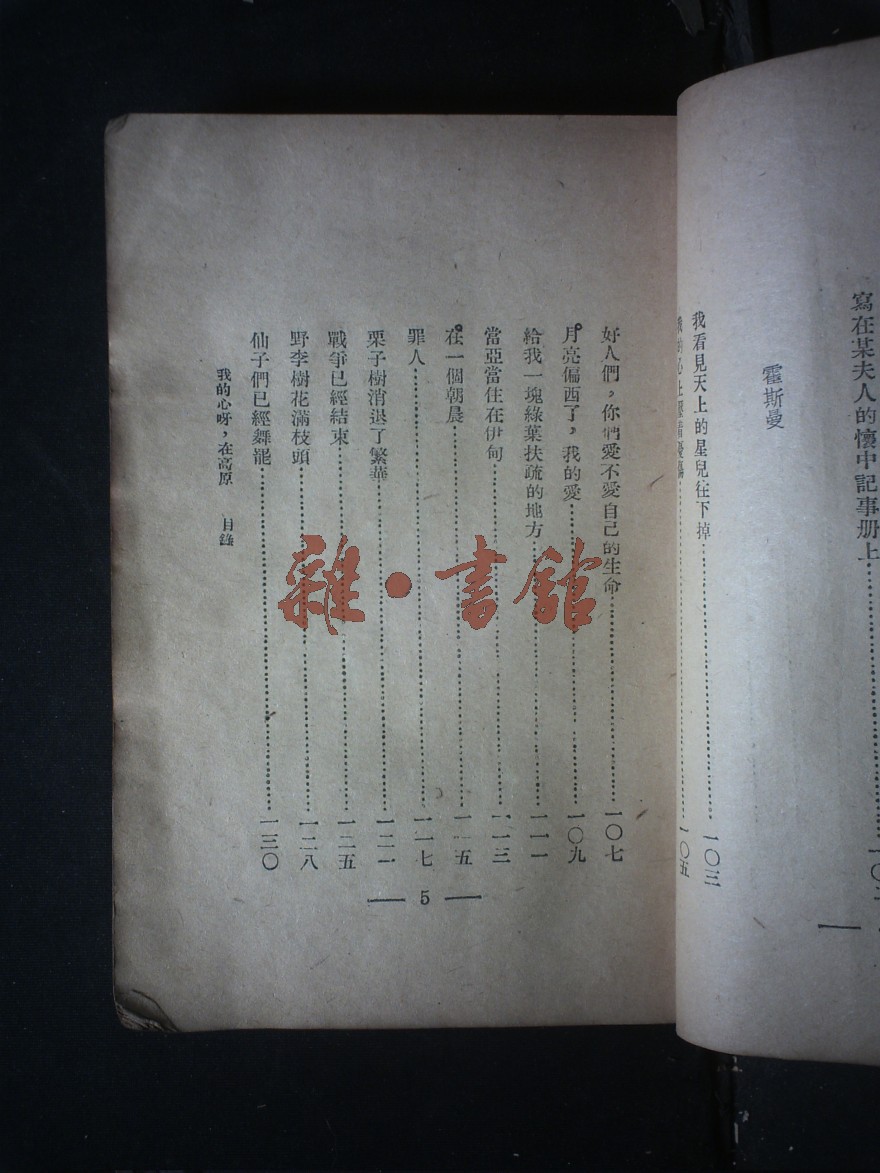 寫在某夫人的懷中記事册上
霍斯曼
我看見天上的星兒往下掉 一〇三
我的心上壓着憂傷 一〇五
好人們，你們愛不愛自己的生命 一〇七
月亮偏西了，我的愛 一〇九
給我一塊綠葉扶疏的地方 一一一
當亞當住在伊甸 一一三
在一個朝晨 一一五
罪人 一一七
栗子樹消退了繁華 一二一
戰爭已經結束 一二五
野李樹花滿枝頭 一二八
仙子們已經舞罷 一三〇
我的心呀，在高原 目錄
5
雜·書館